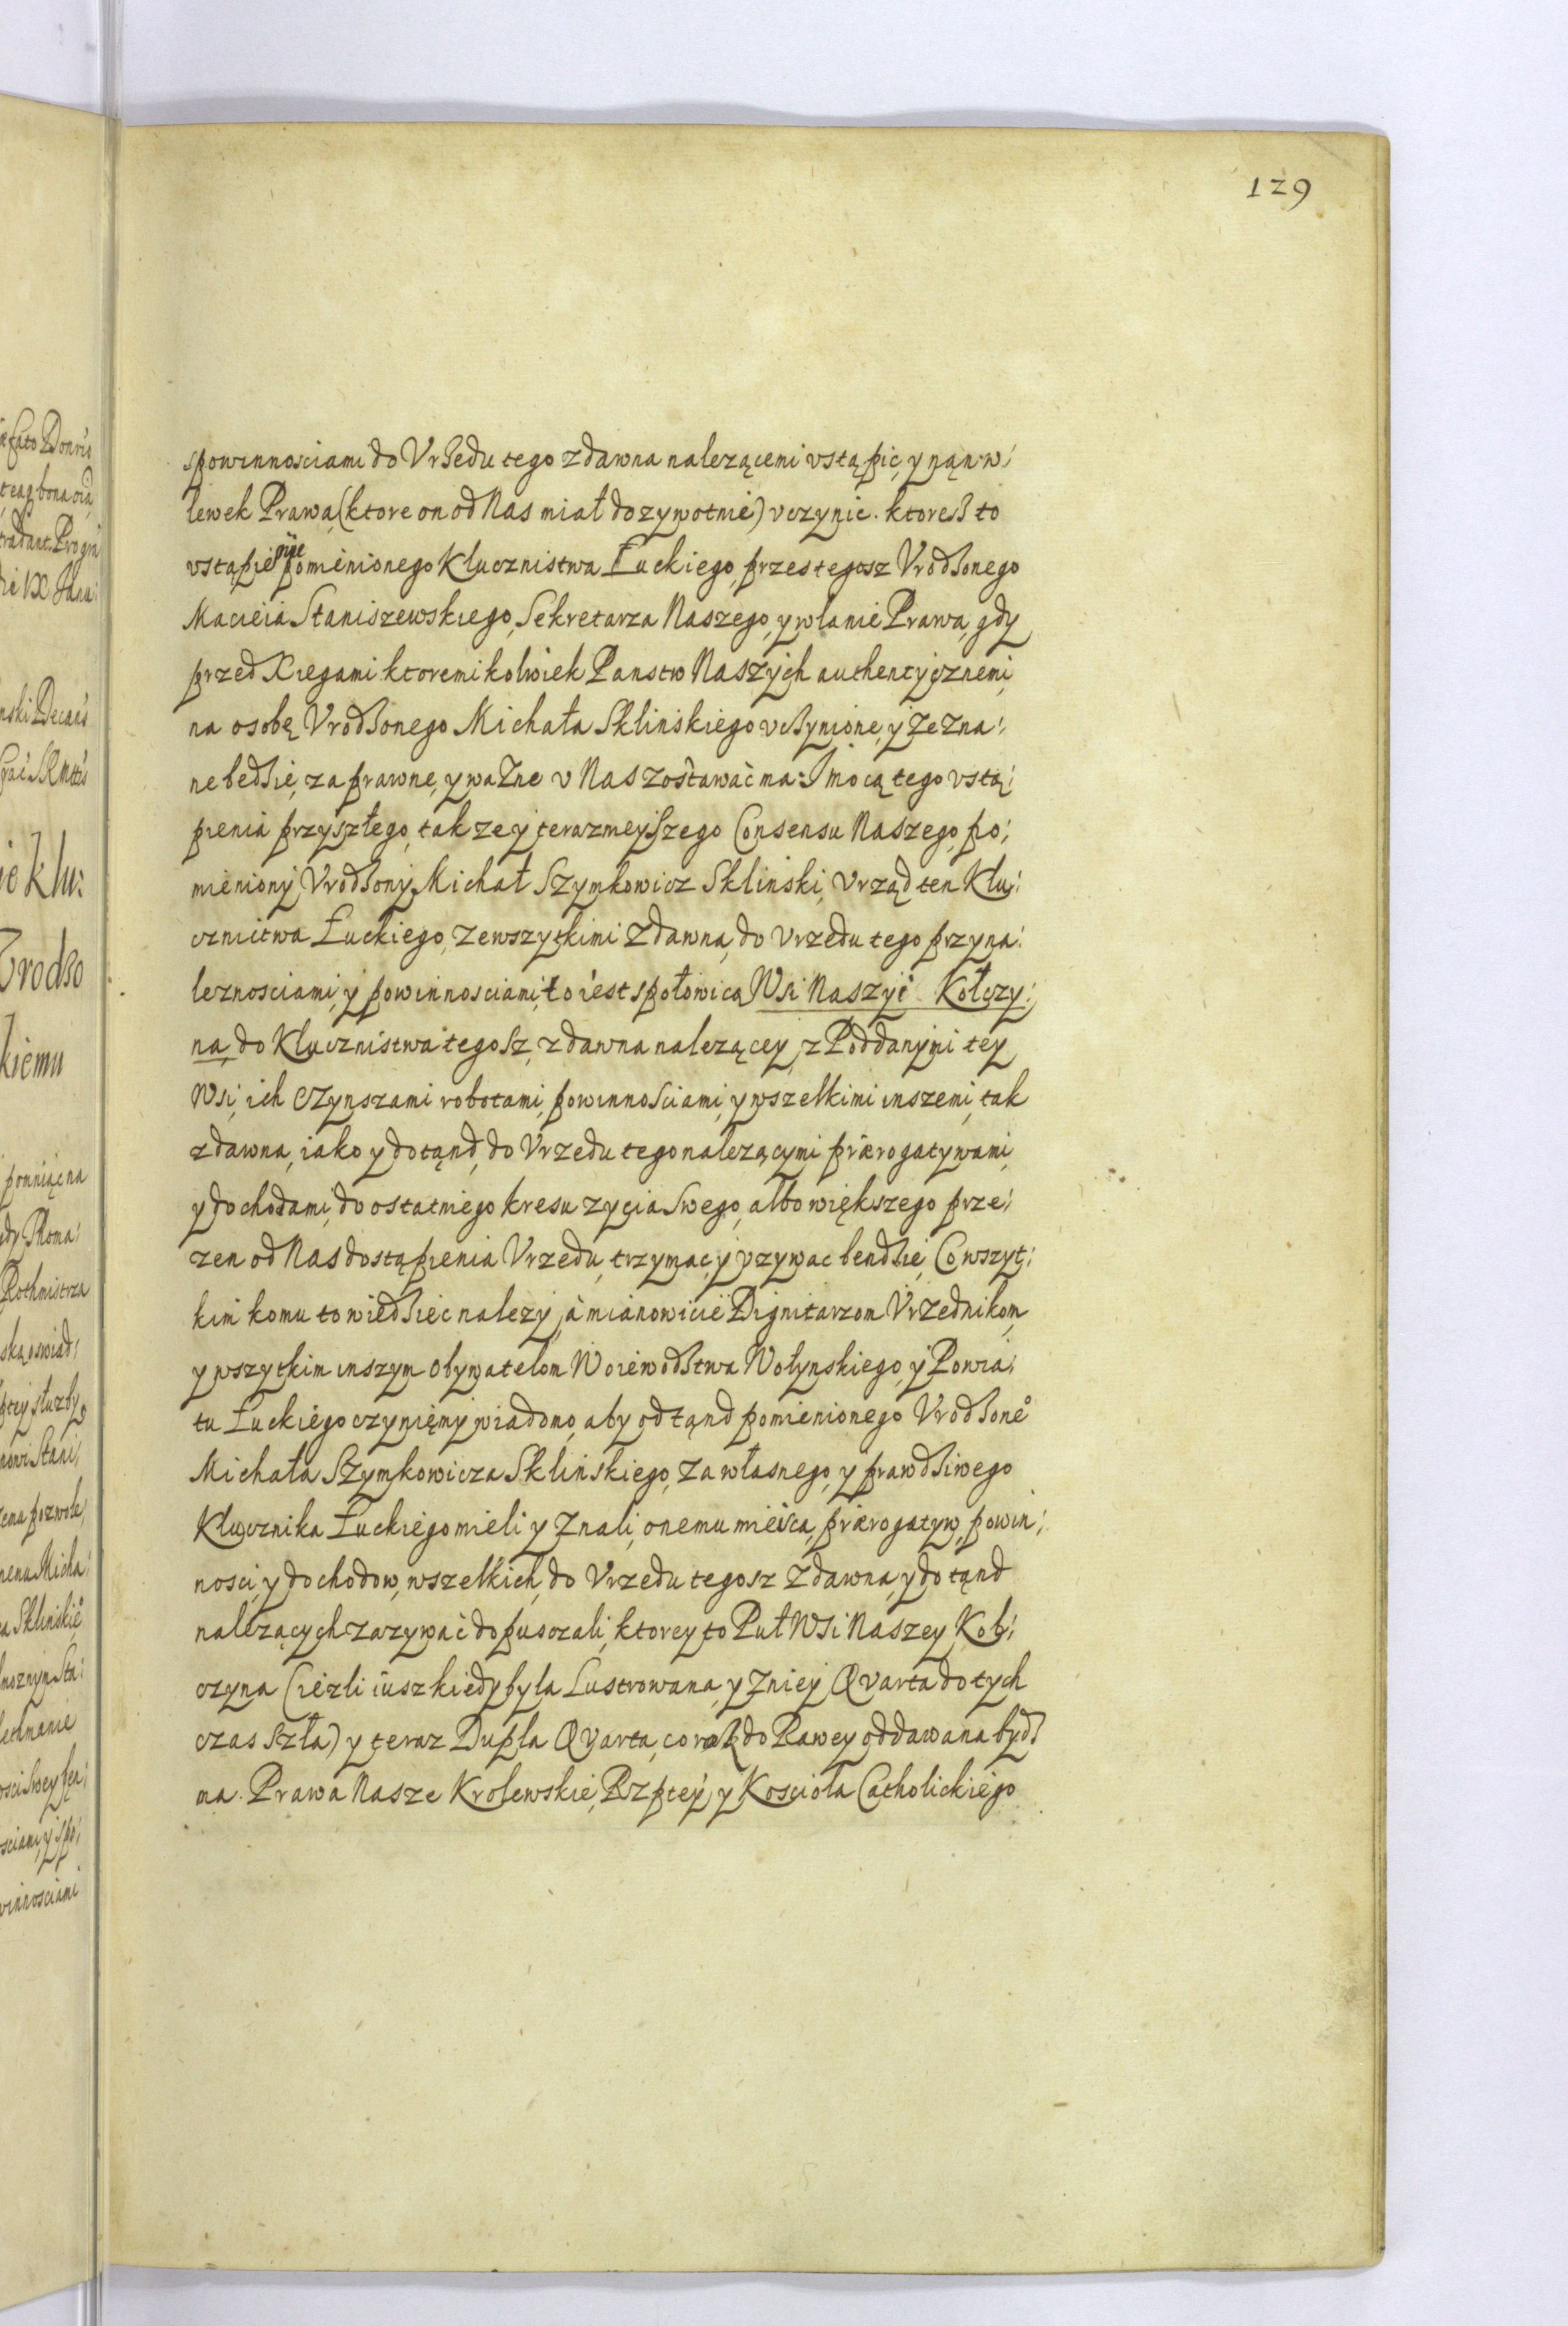 129
spowinnosciami do Vrzedu tego zdawna nalezącemi vstąpic, y nanw:
lewek Prawa (ktore on od Nas miał dozywotnie) vczynic. ktoresz to
vstąpienie pomienionego Klucznistwa Łuckiego, przes tegosz Vrodzonego
Macieia Staniszewskiego, Sekretarza Naszego, y wlanie Prawa, gdy
przed Xiegami ktoremikolwiek Panstw Naszych authentycznemi,
na osobę Vrodzonego Michała Sklinskiego vczynione, y zezna:
ne bedzie, za prawne, y wazne v Nas zostawać ma: I mocą tego vstą:
pienia przyszłego, takze y terazmeyszego Consensu Naszego, po:
mieniony Vrodzony Michał Szymkowicz Sklinski, Vrząd ten Klu:
cznictwa Łuckiego, zewszytkimi zdawna, do Vrzedu tego przyna:
leznosciami, y powinnosciami, to iest społowicą Wsi Naszyi Kołczy:
na, do Klucznistwa tegosz, zdawna nalezącey, z Poddanymi tey
Wsi, ich Czynszami robotami, powinnosciami, y wszelkimi inszemi, tak
zdawna, iako y dotąnd, do Vrzedu tego nalezącymi prærogatywami,
y dochodami, do ostatniego kresu zycia Swego, albo większego prze:
zen od Nas dostąpienia Vrzedu, trzymac, y vzywac bendzie, Co wszyt:
kim komu to wiedziec nalezy, à mianowicie Dignitarzom Vrzednikom,
y wszytkim inszym Obywatelom Woiewodztwa Wołynskiego, y Powia:
tu Łuckiego czyniemy wiadomo, aby odtąnd pomienionego Vrodzone°
Michała Szymkowicza Sklinskiego, za własnego, y prawdziwego
Klucznika Łuckiego mieli y Znali, onemu mieisca, prærogatyw, powin:
nosci, y dochodow, wszelkich, do Vrzedu tegosz zdawna, y dotąnd
nalezących zazywać dopuszczali, ktorey to Puł Wsi Naszey Koł:
czyna (iezli iusz kiedy była Lustrowana, y Zniey Qvarta do tych
czas szła) y teraz Dupla Qvarta, corok do Rawey oddawana bydz
ma. Prawa Nasze Krolewskie, Rzptey, y Kosciola Catholickiego